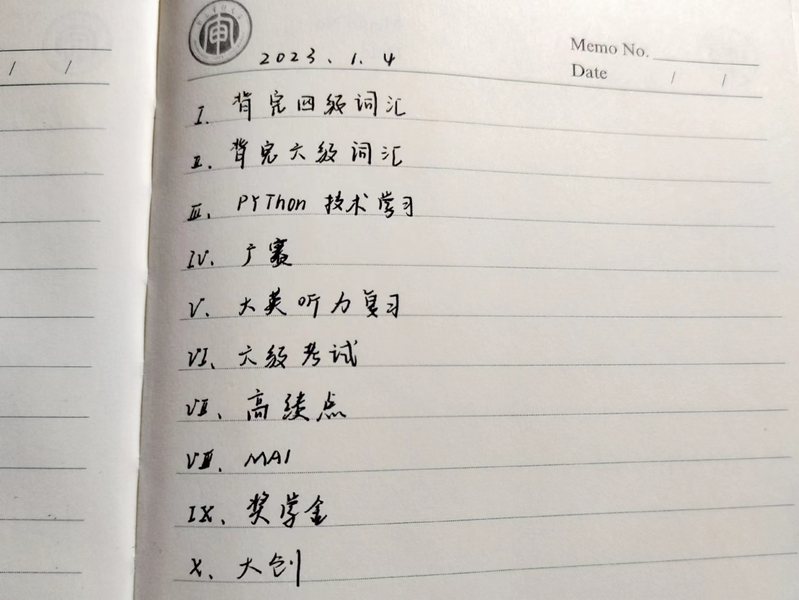 2023.1.4
Memo No.
Date / /
/ /
I. 背完四级词汇
II. 背完六级词汇
III. PYThon 技术学习
IV. 广赛
V. 大英听力复习
VI. 六级考试
VII. 高绩点
VIII. MAI
IX. 奖学金
X. 大创